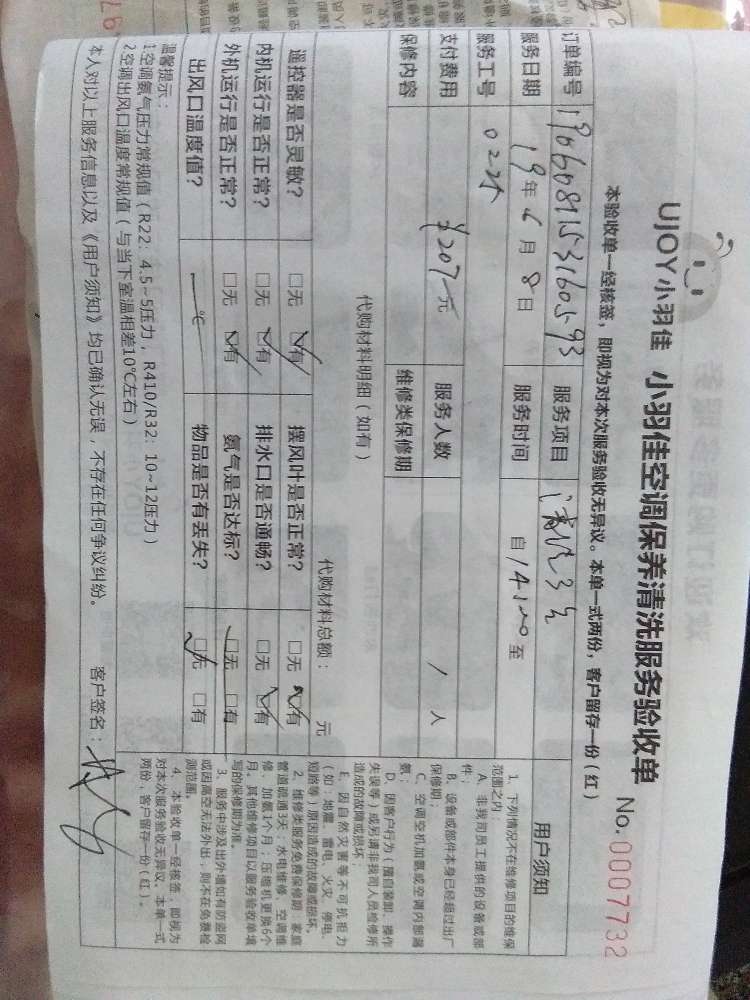 UJOY小羽佳 小羽佳空调保养清洗服务验收单
No.0007732
本验收单一经核签，即视为对本次服务验收无异议。本单一式两份，客户留存一份（红）
订单编号 服务项目
服务日期 19年6月8日 服务时间 自14:00至
服务工号
支付费用 ¥207元 服务人数 1人
保修内容 维修类保修期
代购材料明细（如有） 代购材料总额： 元
遥控器是否灵敏？ □无 □有 摆风叶是否正常？ □无 □有
内机运行是否正常？ □无 □有 排水口是否通畅？ □无 □有
外机运行是否正常？ □无 □有 氨气是否达标？ □无 □有
出风口温度值？ ℃ 物品是否有丢失？ □无 □有
温馨提示：
1.空调氨气压力常规值（R22：4.5~5压力，R410/R32：10~12压力）
2.空调出风口温度常规值（与当下室温相差10℃左右）
本人对以上服务信息以及《用户须知》均已确认无误，不存在任何争议纠纷。 客户签名：
用户须知
1、下列情况不在维修项目的维保
范围之内：
A、非我司员工提供的设备或部
件；
B、设备或部件本身已经超过出厂
保修期；
C、空调空机加氨或空调内部漏
氨；
D、因客户行为（擅自装卸、操作
失误等）或另请非我司人员检修所
造成的故障或损坏；
E、因自然灾害等不可抗拒力
（如：地震、雷电、火灾、停电、
短路等）原因造成的故障或损坏。
2、维修类服务免费保修期：家庭
管道疏通3天，水电维修、空调维
修、加氨1个月；压缩机更换6个
月。其他维修项目以服务验收单填
写的保修期为准。
3、服务中涉及出外墙如有防盗网
或因高空无法外出，则不在免费检
测范围。
4、本验收单一经核签，即视为
对本次服务验收无异议。本单一式
两份，客户留存一份（红）。